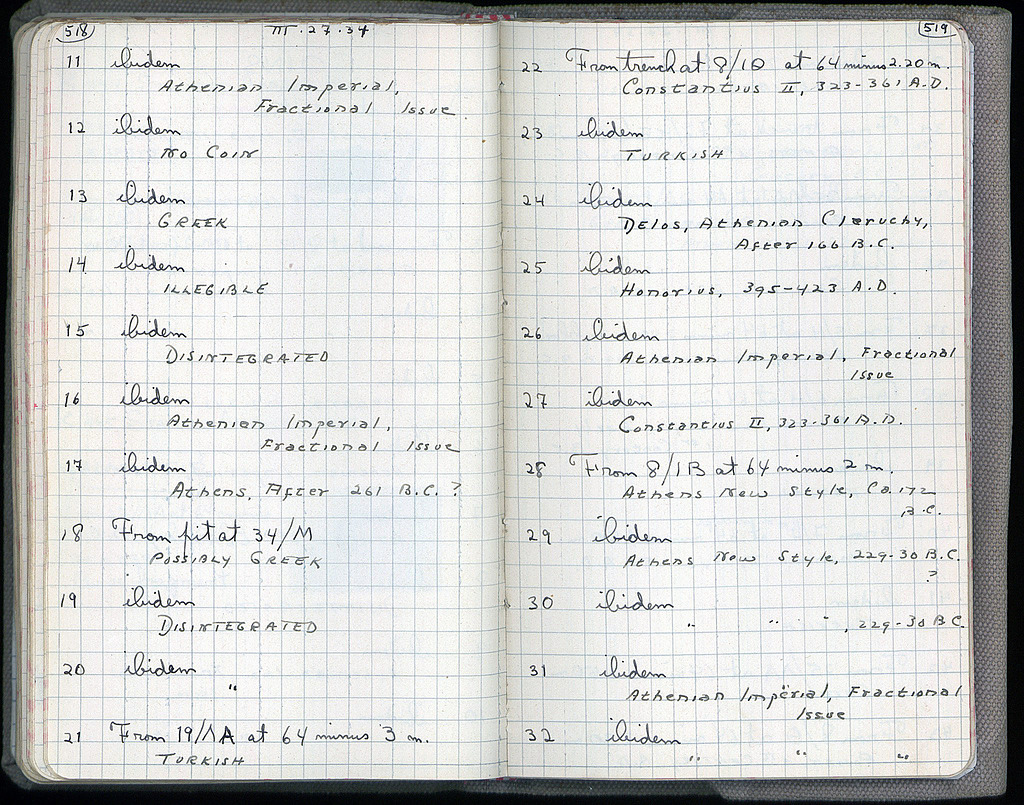 518
III . 27 . 34
11 ibidem
Athenian Imperial,
Fractional Issue
12 ibidem
No Coin
13 ibidem
GREEK
14 ibidem
ILLEGIBLE
15 ibidem
DISINTEGRATED
16 ibidem
Athenian Imperial,
Fractional Issue
17 ibidem
Athens, After 261 B.C. ?
18 From pit at 34/M
POSSIBLY GREEK
19 ibidem
DISINTEGRATED
20 ibidem
"
21 From 19/ΛA at 64 minus 3 m.
TURKISH
519
22 From trench at 8/ΙΘ at 64 minus 2.20 m.
Constantius II, 323-361 A.D.
23 ibidem
TURKISH
24 ibidem
Delos, Athenian Cleruchy,
After 166 B.C.
25 ibidem
Honorius, 395-423 A.D.
26 ibidem
Athenian Imperial, Fractional
Issue
27 ibidem
Constantius II, 323-361 A.D.
28 From 8/ΙΒ at 64 minus 2 m.
Athens New Style, Ca. 172
B.C.
29 ibidem
Athens New Style, 229-30 B.C.
?
30 ibidem
" " " , 229-30 B.C.
31 ibidem
Athenian Imperial, Fractional
Issue
32 ibidem
" " "